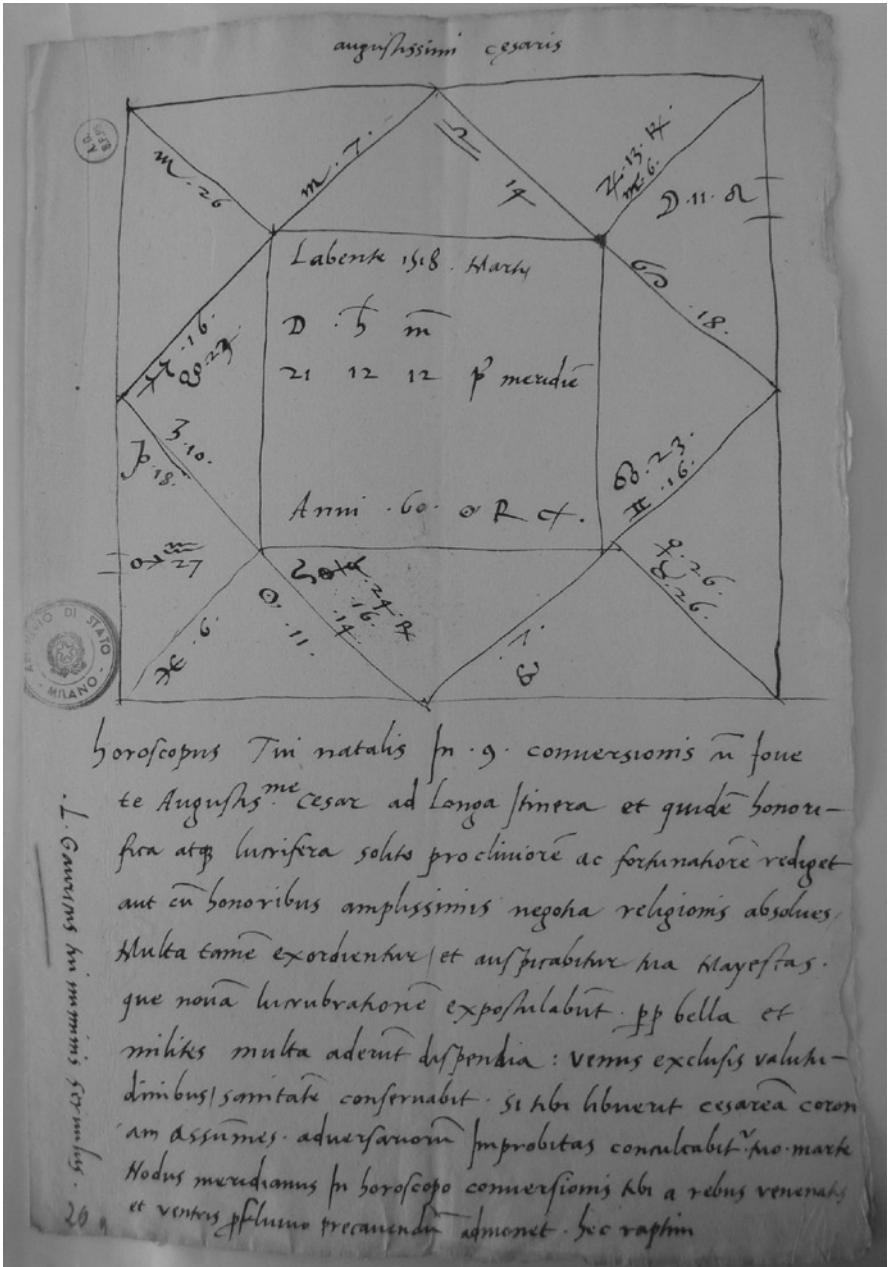 augustissimi cęsaris
Labente 1518. Martij
D h m
21 12 12 p' meridiē
Anni .60. ☉ R
♏ . 26
♏ . 7.
♎
14
♃ . 13. ℞
♍ . 6.
☽ . 11. ♌
♌
.18.
♐ . 16.
☋ . 23
♄ .10.
♑ .18.
♂ ♒
27
☊ . 23.
♊ . 16.
♀ . 26.
♉ . 26.
♓ . 6.
☉ . 11.
24. ℞
.16.
.14.
horoscopus Tui natalis In .9. conversionis cū Joue
te Augustis.me Cesar ad Longa Itinera et quidē honori-
fica atq3 lucrifera solito procliuiorē ac fortunatiorē rediget
aut cū honoribus amplissimis negotia religionis absolues,
Multa tamē exordientur / et auspicabitur tua Mayestas .
que nouā lucubrationē expostulabūt . pp bella et
milites multa aderūt dispendia : venus exclusis valitu-
dinibus / sanitatē conseruabit . Si tibi libuerit cesareā coron
am Assumes . adversariorū Improbitas conculcabitr tuo . marte
Nodus meridianus In horoscopo conversionis tibi a rebus venenatis
et ventris pfluuio precauendū admonet . hec raptim
. L. Gauricus tui numinis seruulus .
20
ARCHIVIO DI STATO
- MILANO -